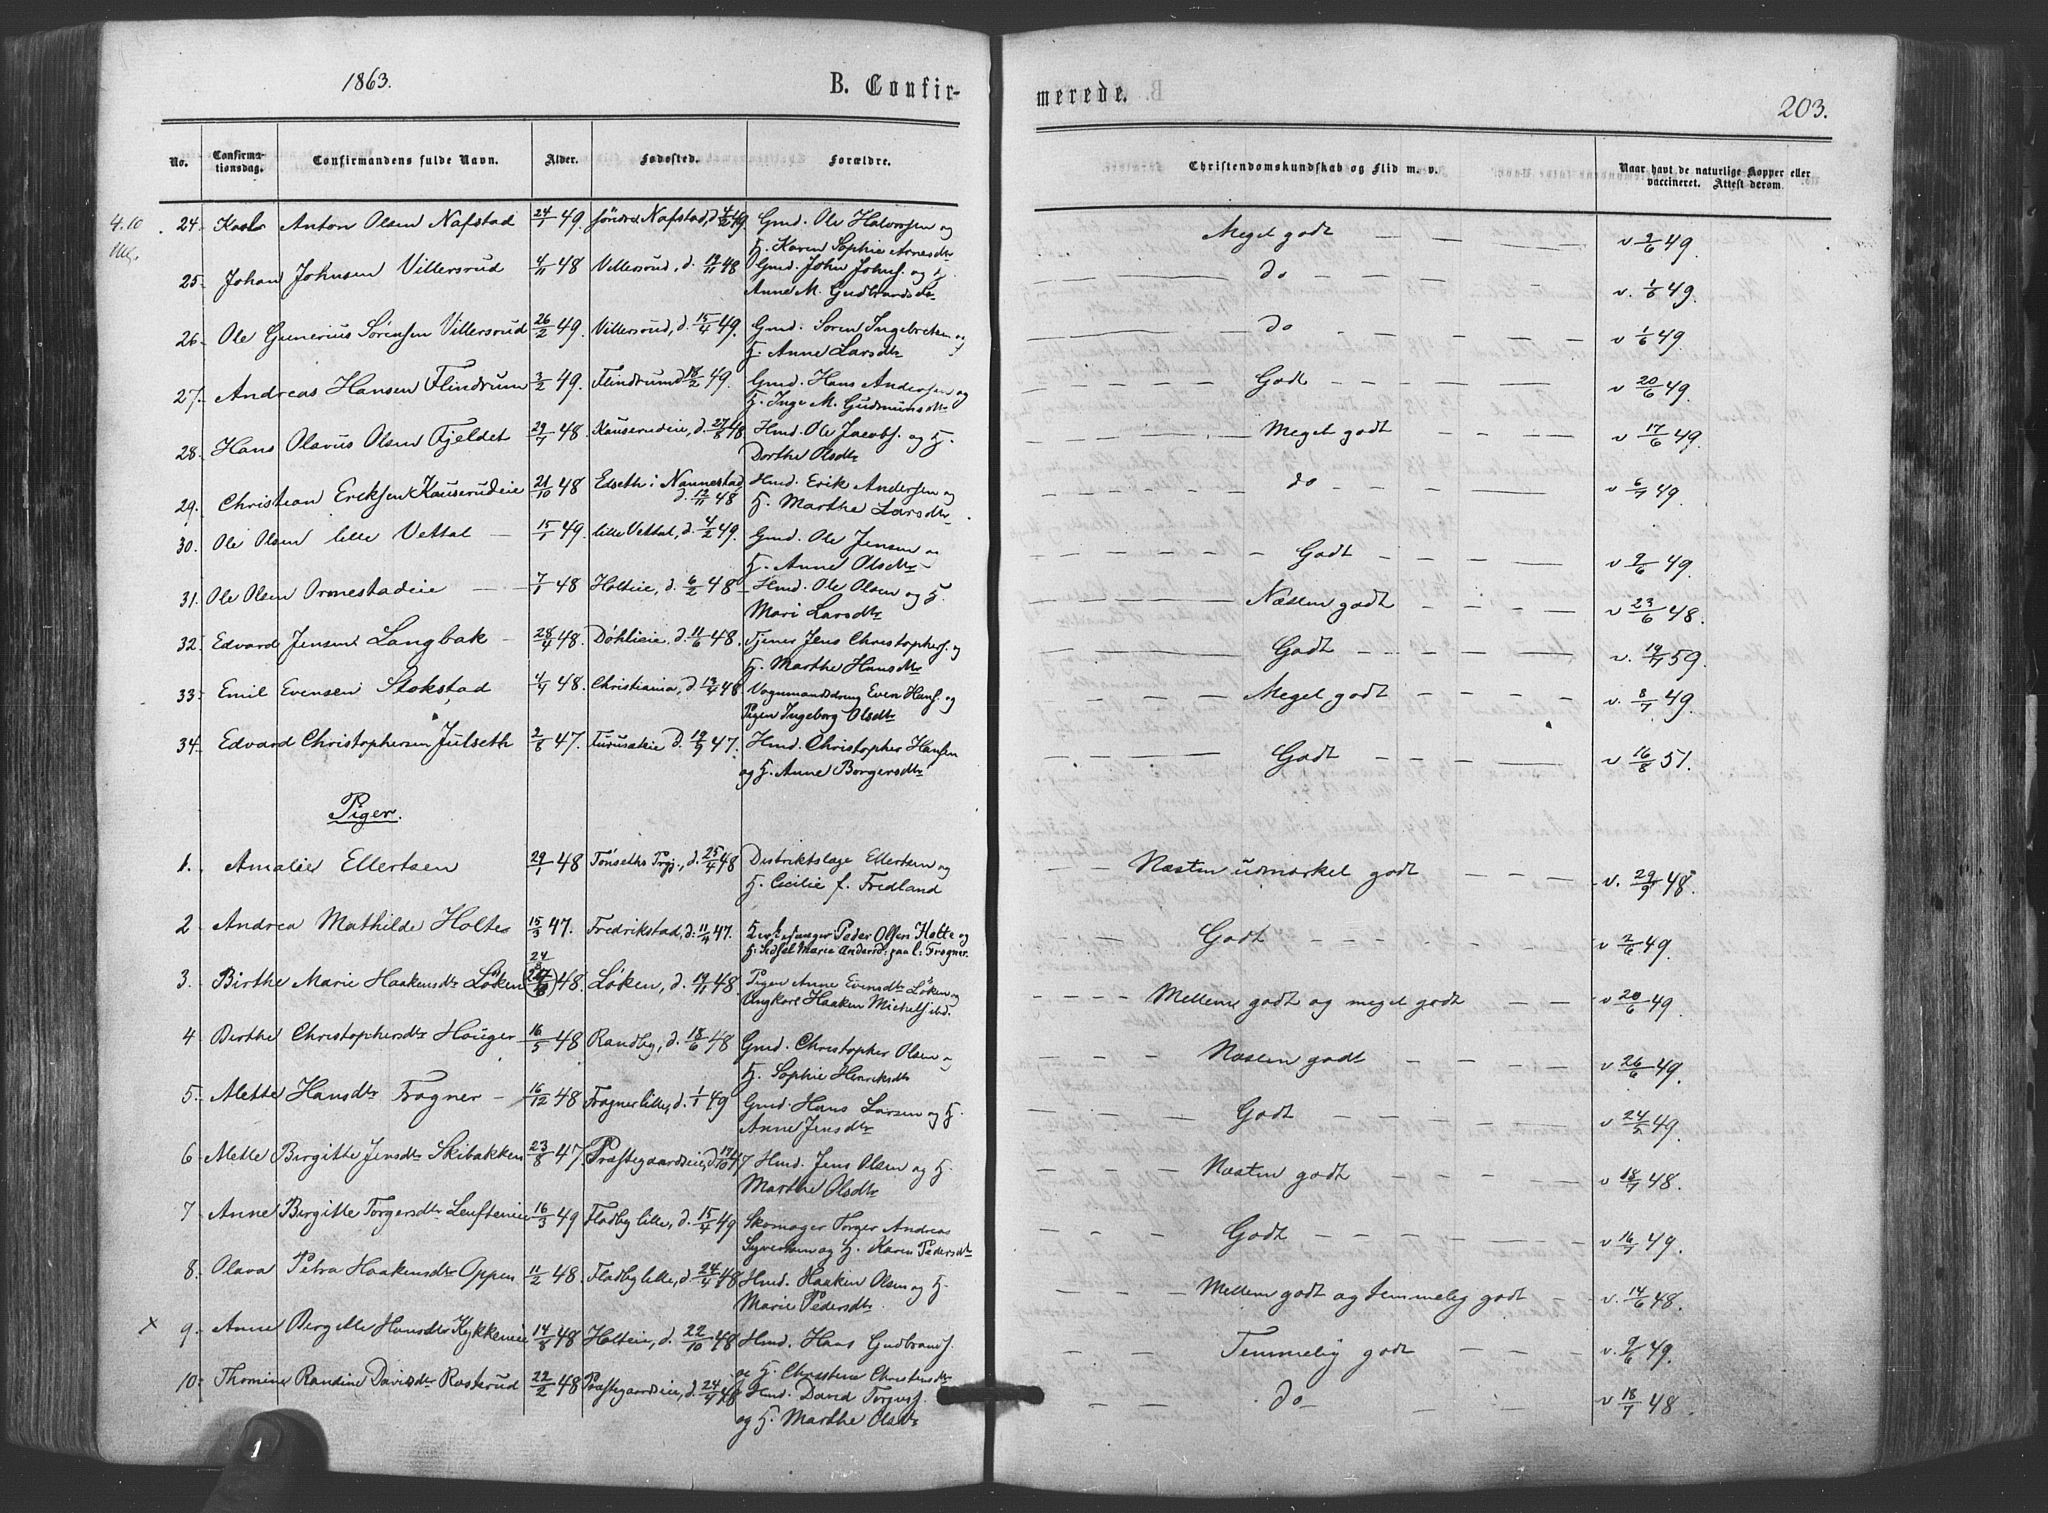 1863.
B. Confir-
merede.
203.
No. Confirma-tionsdag. Confirmandens fulde Navn. Alder. Fødested. Forældre. Christendomskundskab og Flid m. v. Naar havt de naturlige Kopper eller vaccineret. Attest derom.
4.10
24. Karl Anton Olsen Nafstad 24/1 49. søndre Nafstad, d. 4/2 49. Gmd. Ole Halvorsen og Meget godt v 2/6 49.
H. Karen Sophie Arnesdtr
25. Johan Johnsen Villersrud 4/11 48 Villersrud, d. 19/11 48 Gmd. John Johns. og H. do v. 1/6 49.
Anne M. Gudbrandsdr
26. Ole Gunerius Sørensen Villersrud 26/2 49. Villersrud, d. 15/4 49. Gmd. Søren Ingebretsen og do v 1/6 49.
H. Anne Larsdtr
27. Andreas Hansen Flindrum 3/2 49. Flindrum d 18/2 49. Gmd. Hans Andersen og Godt v 20/6 49.
H. Inge M. Gudmunsdtr
28. Hans Olavus Olsen Fjeldet 29/7 48 Kauserudeie, d. 27/8 48 Hmd. Ole Jacobs. og H. Meget godt v 17/6 49.
Dorthe Olsdtr
29. Christian Eriksen Kauserudeie 21/10 48 Edseth i Nannestad Hmd. Erik Andersen og do v 6/7 49.
d. 12/11 48 H. Marthe Larsdtr
30. Ole Olsen lille Vettal 15/1 49. lille Vettal, d. 4/2 49. Gmd. Ole Jensen o Godt v 2/6 49.
H. Anne Olsdtr
31. Ole Olsen Ornestadeie 7/1 48 Holteie, d. 6/2 48 Hmd. Ole Olsen og H Næsten godt v 23/6 48.
Mari Larsdtr
32. Edvard Jensen Langbak 28/4 48. Døhlieie, d. 11/6 48. Tjener Jens Christophers. og Godt v. 19/7 59.
H. Marthe Hansdtr
33. Emil Evensen Stokstad 4/4 48. Christiania, d. 13/4 48 Vognmandsdreng Even Hans. og Meget godt v. 8/7 49.
Pigen Ingeborg Olsdtr
34. Edvard Christophersen Julseth 2/8 47. Furusakie d. 19/9 47. Hmd. Christopher Hansen Godt v 16/8 51.
og H. Anne Borgersdtr
Piger.
1. Amalie Ellertsen 29/1 48 Tønseths Prgj., d. 25/4 48 Distriktslæge Ellertsen og Næsten udmærket godt v. 29/9 48.
H. Cecilie f. Fredland
2 Andrea Mathilde Holte 15/3 47. Fredrikstad, d. 11/4 47. Peder Olsen Holte og Godt v 2/6 49.
H. Sidsel Marie Andersd: paa l: Frogner.
3. Birthe Marie Haakensdtr Løken 24/8 48. Løken, d. 19/11 48 Pigen Anne Evensdtr Løken og Mellem godt og meget godt v 20/6 49.
Ungkarl Haaken Michels ibd.
4 Birthe Christophersdtr Houger 16/5 48 Randby, d. 18/6 48 Gmd. Christopher Olsen o Næsten godt v 26/6 49.
H. Sophie Henriksdtr
5. Mette Hansdtr Frogner 16/12 48 Frogner lille, d. 1/1 49 Gmd. Hans Larsen og H. Godt v 24/5 49.
Anne Jensdtr
6 Mette Birgitte Jensdtr Skibakken 23/8 47 Præstegaardseie, d 17/10 47 Hmd. Jens Olsen og H. Næsten godt v 18/7 48.
Marthe Olsdtr
7 Anne Birgitte Torgersdtr Lensteneie 16/3 49 Fladby lille, d. 15/4 49 Skomager Torger Andreas Godt v 16/7 49.
Syvertsen og H. Karen Pedersdtr
8. Olava Petra Haakensdtr Oppen 11/2 48. Fladby lille, d. 24/4 48 Hmd. Haaken Olsen og H. Mellem godt og temmelig godt v. 14/6 48.
Marie Pedersdtr.
x 9. Anne Birgitte Hansdtr Kykkeneie 14/8 48 Holteie, d. 22/10 48 Hmd. Hans Gudbrands. Temmelig godt v. 2/6 49.
og H. Christine Christensdtr
10. Thomine Randine Davidsdtr Rasterud 22/2 48 Præstegaardseie, d. 24/4 48 Hmd. David Torgers. do v 18/7 48.
og H. Marthe Olsdtr